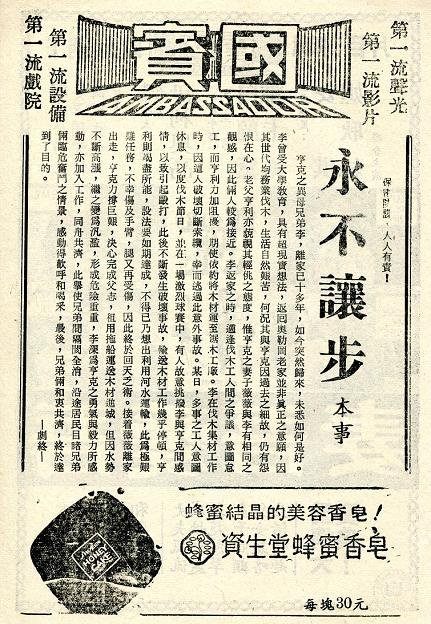 第一流聲光
第一流影片
國賓
AMBASSADOR
第一流設備
第一流戲院
保密防諜，人人有責！
永不讓步 本事
亨克之異母兄弟李，離家已十多年，如今突然歸來，未悉如何是好。
李曾受大學教育，具有超現實想法，返回奧勒岡老家並非眞正之意願，因
其世代均務業伐木，生活自然艱苦，何况其與亨克因過去之細故，仍有怨
恨在心。老父亨利亦藐視其輕佻之態度，惟亨克之妻子薇薇與李有相同之
觀感，因此倆人較爲接近。李返家之時，適逢伐木工人間之爭議，意圖怠
工，而亨利力加阻擾，期使依約將木材運至鋸木工廠。李在伐木集材工作
時，因遭人破壞切斷索纜，幸而逃過此意外事故。某日，多事之工人意圖
休息，以度伐木節日，並在一場激烈球賽中，有人故意挑撥李與亨克間感
情，以致引起毆打，此後不斷發生破壞事故，輪送木材工作幾乎停頓，亨
利則竭盡所能，設法要如期達成，不得已乃想出利用河水運輸，此爲極艱
難任務，不幸傷及手臂，腿又再受傷，因此終於回天乏術。接着薇薇離家
出走，亨克力撐巨艱，决心完成父志，租用拖船運送木材進城，但因水勢
不斷高漲，繼之變爲汎濫，形成危險重重，李深爲亨克之勇氣與毅力所感
動，亦加入工作，同舟共濟，此舉使兄弟間隔閡全消，沿途居民目睹兄弟
倆臨危奮鬥之情景，感動得歡呼和喝釆，最後，兄弟倆和衷共濟，終於達
到了目的。
—劇終—
蜂蜜結晶的美容香皂！
資生堂蜂蜜香皂
每塊30元